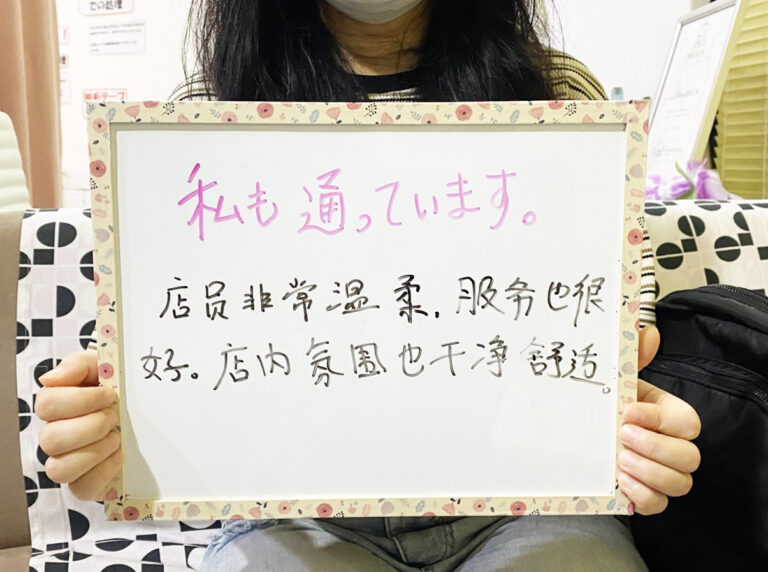 での処理
私も通っています。
店员非常温柔，服务也很
好。店内氛围也干净舒适。